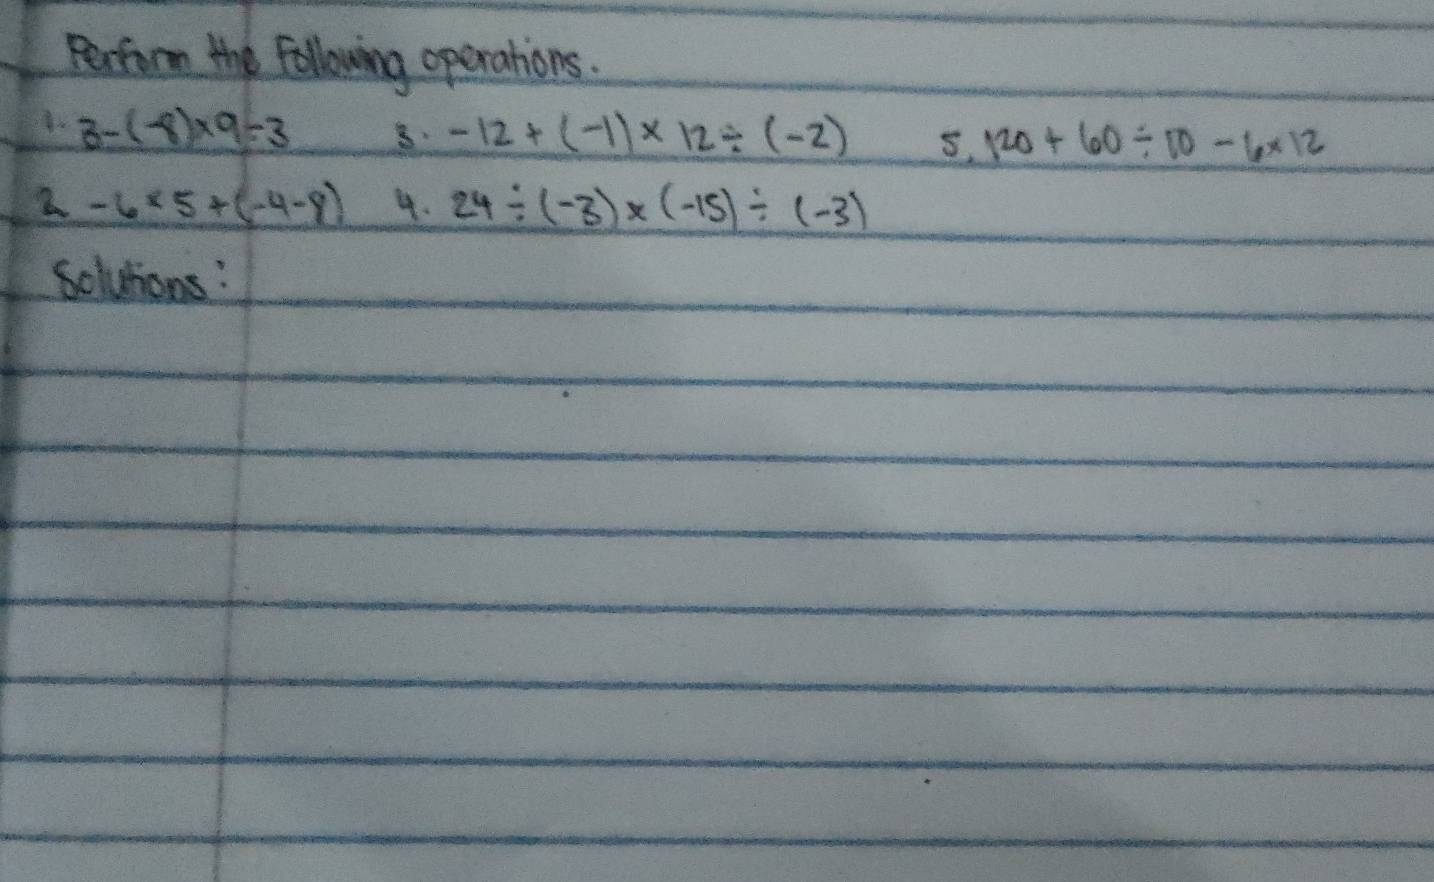 Perform the following operations.
1. 3-(-8)×9÷3 3. -12 + (-1) × 12 ÷ (-2) 5. 120 + 60 ÷ 10 - 6×12
2. -6×5+(-4-8) 4. 24 ÷ (-3) × (-15) ÷ (-3)
Solutions: